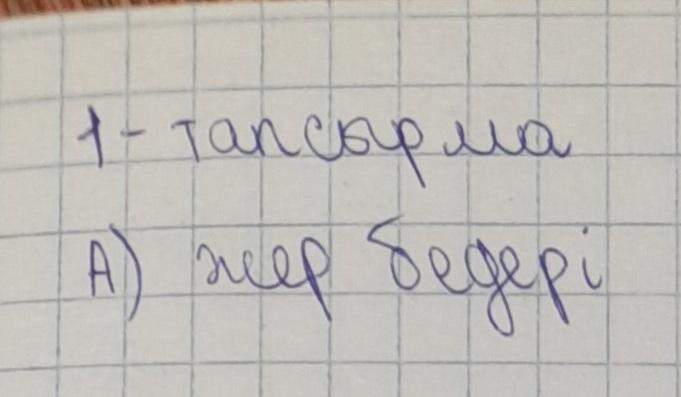 1-тапсырма
А) жер бедері